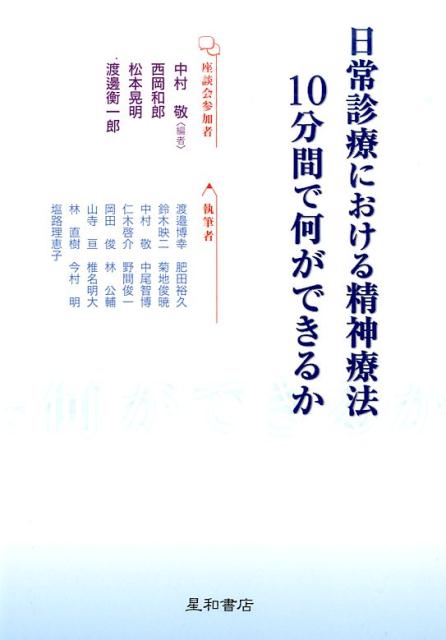 日常診療における精神療法
10分間で何ができるか
座談会参加者
中村 敬〈編者〉
西岡和郎
松本晃明
渡邊衡一郎
執筆者
渡邉博幸 肥田裕久
鈴木映二 菊地俊暁
中村 敬 中尾智博
仁木啓介 野間俊一
岡田 俊 林 公輔
山寺 亘 椎名明大
林 直樹 今村 明
塩路理恵子
何ができるか
星和書店